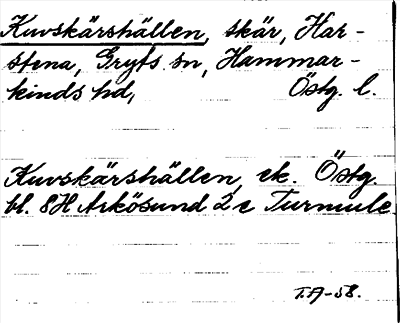 Kuvskärshällen, skär, Har-
stena, Gryts sn, Hammar-
kinds hd, Östg. l.
Kuvskärshällen, ek. Östg.
bl. 8H Arkösund 2 c Turmule.
T.A-58.